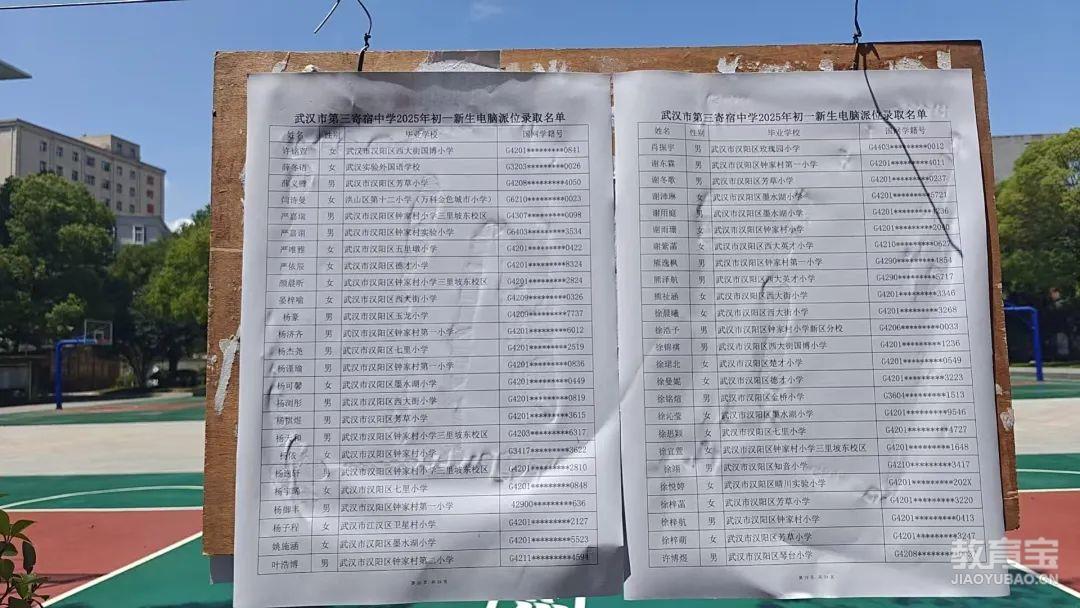 武汉市第三寄宿中学2025年初一新生电脑派位录取名单
姓名 性别 毕业学校 国网学籍号
许铭萱 女 武汉市汉阳区西大街国博小学 G4201**********0841
薛冬语 女 武汉实验外国语学校 G3203**********0026
薛 男 武汉市汉阳区芳草小学 G4208**********4050
闫诗曼 女 洪山区第十二小学（万科金色城市小学） G6210**********0023
严嘉瑞 男 武汉市汉阳区钟家村小学三里坡东校区 G4307**********0098
严嘉谢 男 武汉市汉阳区钟家村实验小学 G6403**********3534
严唯雅 女 武汉市汉阳区五里墩小学 G4201**********0422
严依辰 女 武汉市汉阳区德才小学 G4201**********8324
颜晨昕 女 武汉市汉阳区钟家村小学三里坡东校区 G4201**********2824
晏梓喻 女 武汉市汉阳区西大街小学 G4209**********0326
杨豪 男 武汉市汉阳区玉龙小学 G4209**********7737
杨济齐 男 武汉市汉阳区钟家村第一小学 G4201**********6012
杨杰尧 男 武汉市汉阳区七里小学 G4201**********2519
杨谨瑜 男 武汉市汉阳区钟家村第一小学 G4201**********0836
杨可馨 女 武汉市汉阳区墨水湖小学 G4201**********0449
杨润彤 女 武汉市汉阳区西大街小学 G4201**********0819
杨恒煜 男 武汉市汉阳区芳草小学 G4201**********3615
杨天和 男 武汉市汉阳区钟家村小学三里坡东校区 G4203**********6317
杨依 女 武汉市汉阳区钟家村小学 G3417**********3622
杨逸轩 男 武汉市汉阳区钟家村小学三里坡东校区 G4201**********2810
杨宇 女 武汉市汉阳区七里小学 G4201**********0848
杨御丰 男 武汉市汉阳区钟家村第一小学 42900**********636
杨子程 女 武汉市江汉区卫星村小学 G4201**********2127
姚施涵 女 武汉市汉阳区墨水湖小学 G4201**********5523
叶浩博 男 武汉市汉阳区钟家村第二小学 G4211**********4594
武汉市第三寄宿中学2025年初一新生电脑派位录取名单
姓名 性别 毕业学校 国网学籍号
肖振宇 男 武汉市汉阳区玫瑰园小学 G4403**********0012
谢东霖 男 武汉市汉阳区钟家村第一小学 G4201**********4011
谢冬歌 男 武汉市汉阳区芳草小学 G4201**********0237
谢沛琳 女 武汉市汉阳区墨水湖小学 G4201**********5721
谢用庭 男 武汉市汉阳区墨水湖小学 G4201**********236
谢雨珊 女 武汉市汉阳区钟家村小学 G4201**********2040
谢紫菡 女 武汉市汉阳区西大英才小学 G4210**********0627
熊逸枫 男 武汉市汉阳区钟家村第一小学 G4290**********4854
熊泽航 男 武汉市汉阳区西大英才小学 G4290**********5717
熊祉涵 女 武汉市汉阳区西大街小学 G4201**********3346
徐晨曦 女 武汉市汉阳区西大街小学 G4201**********3268
徐浩予 男 武汉市汉阳区钟家村小学新区分校 G4206**********0033
徐锦棋 男 武汉市汉阳区西大街国博小学 G4201**********1236
徐珺北 女 武汉市汉阳区楚才小学 G4201**********0549
徐曼妮 女 武汉市汉阳区德才小学 G4201**********3223
徐铭煊 男 武汉市汉阳区金桥小学 G3604**********1513
徐沁莹 女 武汉市汉阳区墨水湖小学 G4201**********9546
徐思颖 女 武汉市汉阳区七里小学 G4201**********4727
徐宜萱 女 武汉市汉阳区钟家村小学三里坡东校区 G4201**********1648
徐翊 男 武汉市汉阳区知音小学 G4210**********3417
徐悦婷 女 武汉市汉阳区晴川实验小学 G4201**********202X
徐梓菡 女 武汉市汉阳区芳草小学 G4201**********3220
徐梓航 男 武汉市汉阳区钟家村小学 G4201**********0413
徐梓萌 女 武汉市汉阳区芳草小学 G4201**********3247
许博煜 男 武汉市汉阳区琴台小学 G4208**********
教育宝
JIAOYUBAO.CN